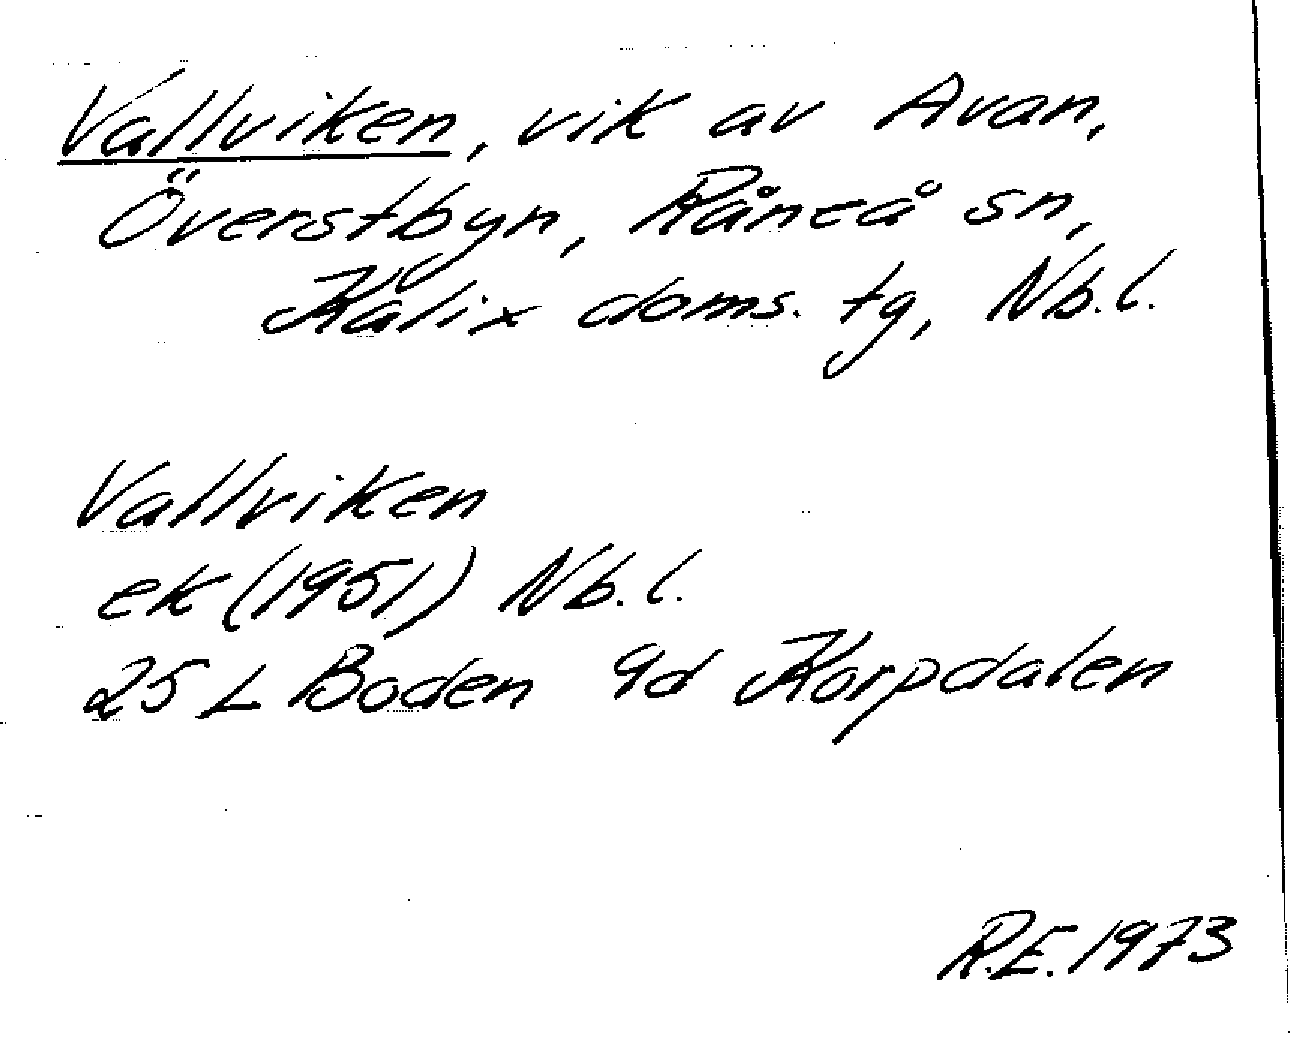 Vallviken, vik av Avan,
Överstbyn, Råneå sn,
Kalix doms. tg, Nb.l.
Vallviken
ek (1951) Nb.l.
25 L Boden 9d Korpdalen
R.E. 1973